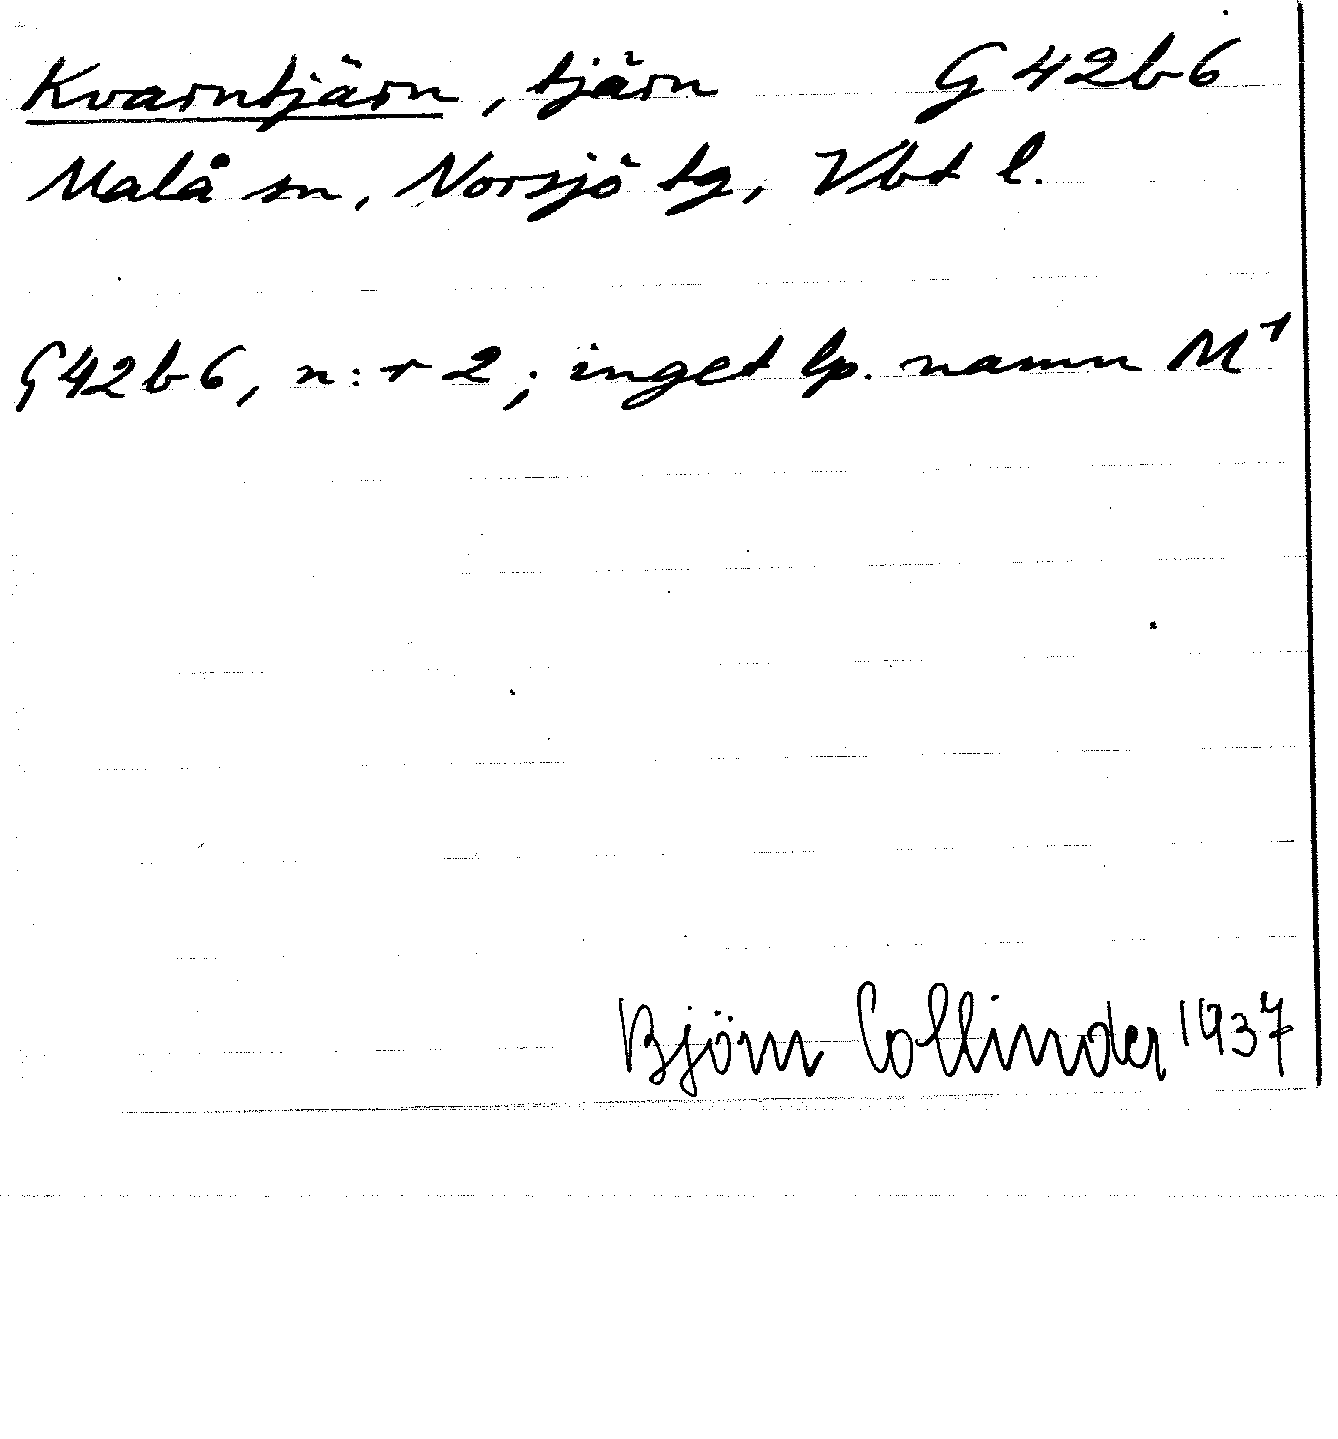 Kvarntjärn, tjärn G42b6
Malå sn, Norsjö tg, Vbt l.
G42b6, n:r 2; inget lp. namn M¹
Björn Collinder 1937